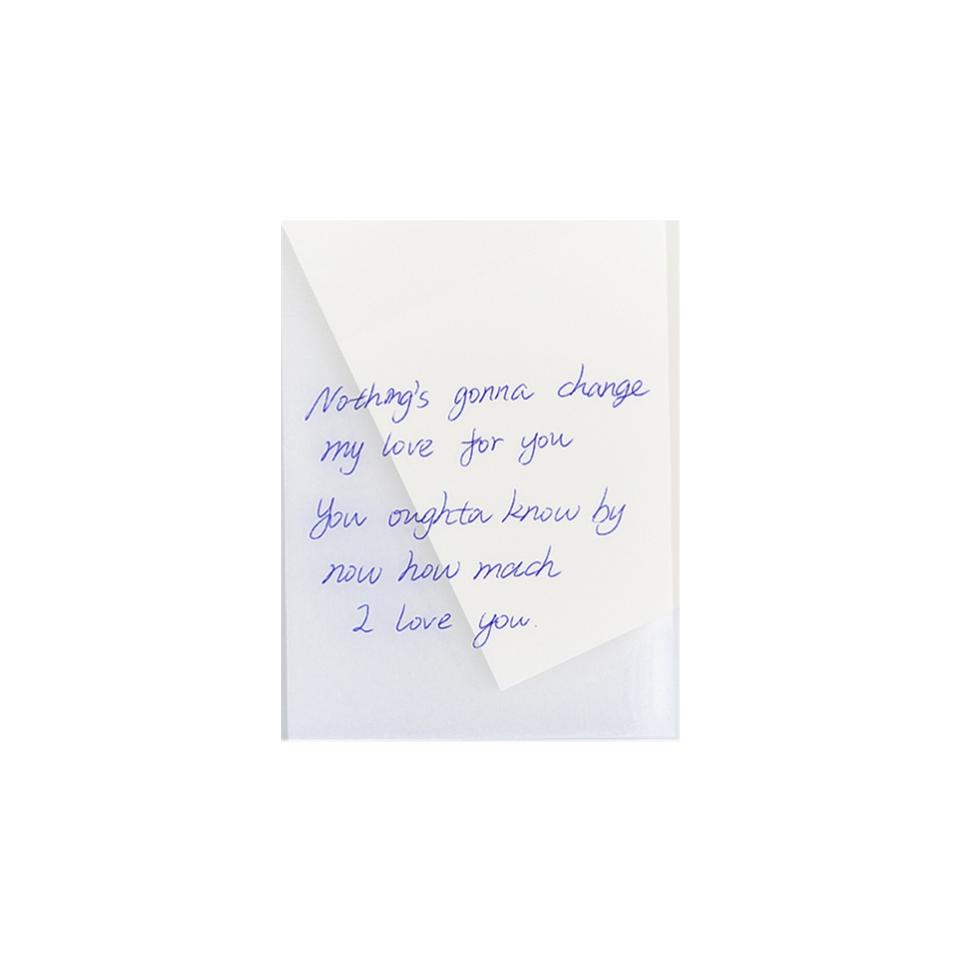 Nothing's gonna change
my love for you
You oughta know by
now how much
I love you.